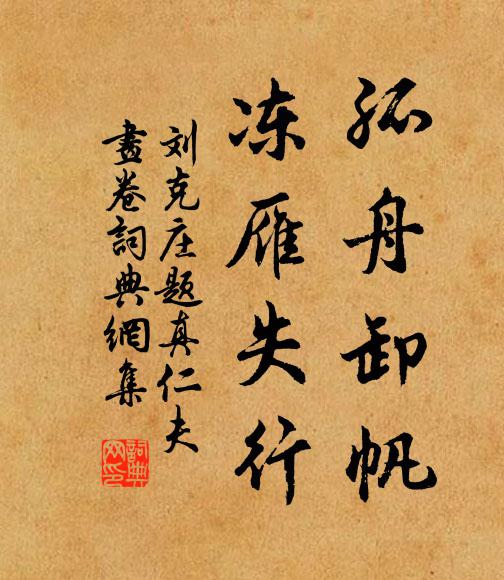 孤舟卸帆
冻雁失行
刘克庄题真仁夫
畫卷詞典網集
詞典
网印